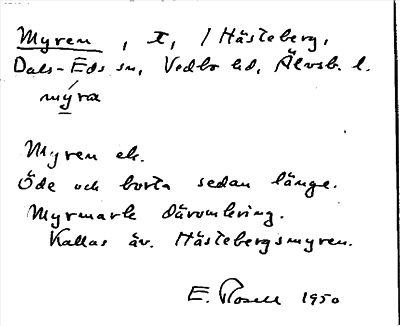 Myren, x, / Hästeberg,
Dals-Eds sn, Vedbo hd, Älvsb. l.
mýra
Myren ek.
Öde och borta sedan länge.
Myrmark däromkring.
Kallas äv. Hästebergsmyren.
E. Rosell 1950